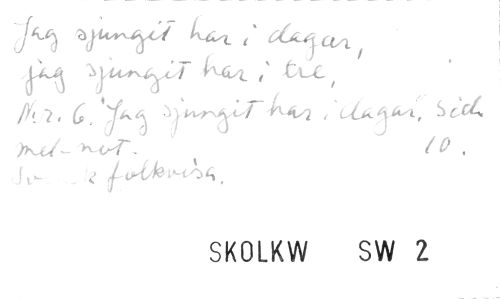 Jag sjungit har i dagar,
jag sjungit har i tre,
N:r. 6. "Jag sjungit har i dagar", sid.
mel-not. 10.
folkvisa.
SKOLKW SW 2